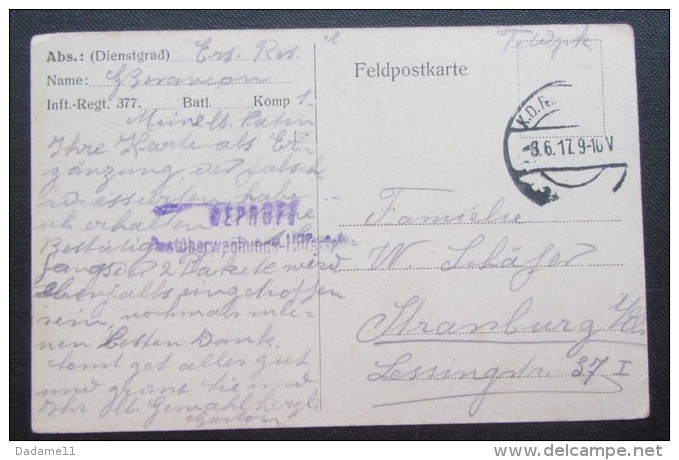 Abs.: (Dienstgrad) Ers. Res.
Name:
Inft.-Regt. 377. Batl. Komp 1
Meine lb. Patin
Ihre Karte als Er-
gänzung der falsch
adressierten habe
ich erhalten
Bestätig
fangs der 2 Pakete wird
ebenfalls eingetroffen
sein, nochmals mei-
nen besten Dank,
sonst get alles gut
und grüsse Sie und
Ihr lb. Gemahl herzl.
Gaston
GEPRÜFT
Postüberwachungs-
Feldpostkarte
K.D. Fel
8.6.17. 9-10V
Familie
W. Schäfer
Strassburg i/Els
Lessingstr. 37 I
© Dadame11
www.delcampe.net